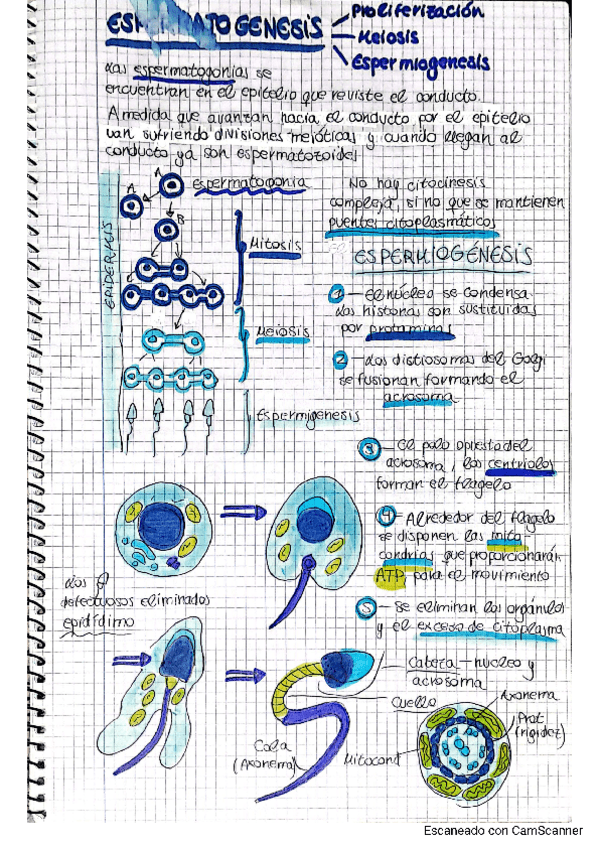 ESPERMATOGENESIS
Proliferización
Meiosis
Espermiogenesis
Las espermatogonias se
encuentran en el epitelio que reviste el conducto.
A medida que avanzan hacia el conducto por el epitelio
van sufriendo divisiones meióticas y cuando llegan al
conducto ya son espermatozoides
A
A
B
espermatogonia
EPIDERMIS
Mitosis
Meiosis
Espermigenesis
No hay citocinesis
compleja, si no que se mantienen
puentes citoplasmáticos
ESPERMIOGÉNESIS
1 - El núcleo se condensa.
Las histonas son sustituidas
por protaminas
2 - Los dictiosomas del Golgi
se fusionan formando el
acrosoma
3 - El polo opuesto del
acrosoma, los centriolos
forman el flagelo
4 - Alrededor del flagelo
se disponen las mito-
condrias que proporcionarán
ATP para el movimiento
5 - Se eliminan los orgánulos
y el exceso de citoplasma
Los
defectuosos eliminados
epidídimo
Cabeza - núcleo y
acrosoma
Cuello
Cola
(Axonema)
Axonema
Prot
(rigidez)
Mitocond
Escaneado con CamScanner